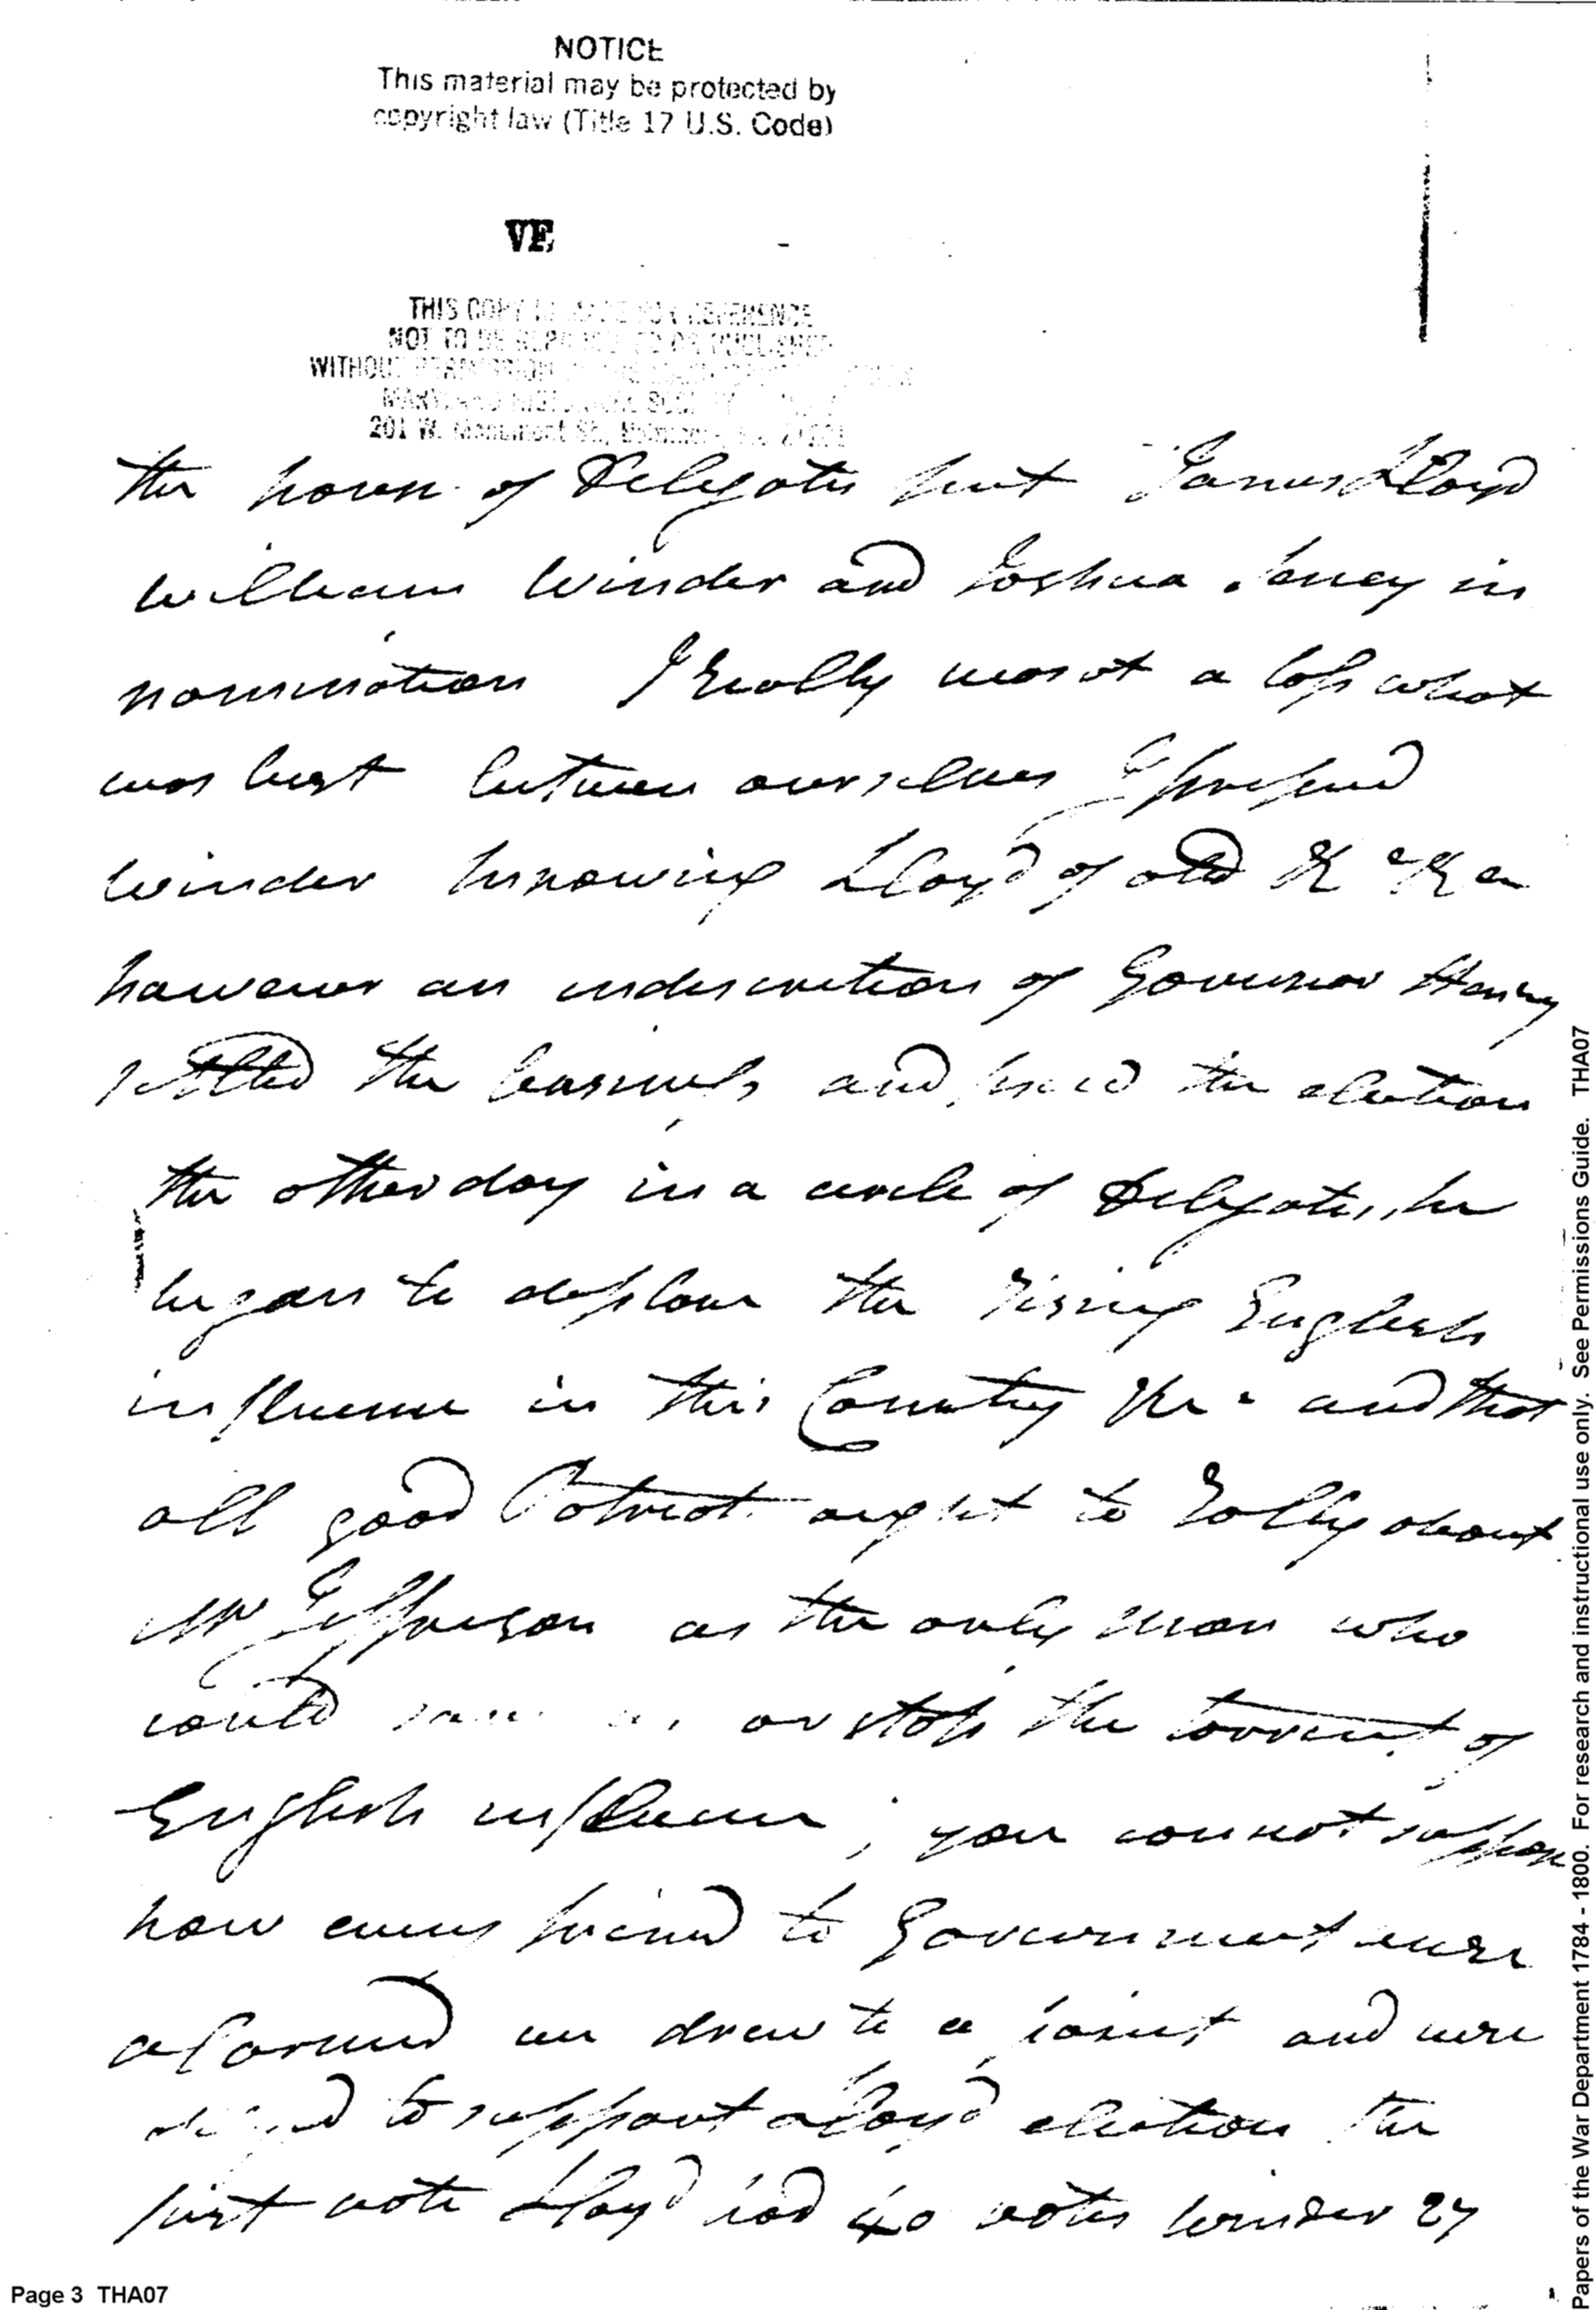 NOTICE
This material may be protected by
copyright law (Title 17 U.S. Code)
VE
THIS COPY FOR REFERENCE
NOT TO BE OR
WITHOUT
MARYLAND
201 W. Monument St.,
the house of Delegates put James Lloyd
William Winder and Joshua Seney in
nomination I really was at a loss what
was best between ourselves I prefered
Winder knowing Lloyd of old
however an indiscretion of Governor Henry
settled the business and the election
the other day in a circle of Delegates, he
began to deplore the rising English
influence in this Country &c. and that
all good Patriots ought to rally about
Mr Jefferson as the only man who
could save us or stop the torrent of
English influence, you cannot suppose
how every friend to Government were
alarmed we drew to a point and were
to support Lloyd election the
first vote Lloyd had 40 votes Winder 27
Page 3 THA07
Papers of the War Department 1784 - 1800. For research and instructional use only. See Permissions Guide. THA07